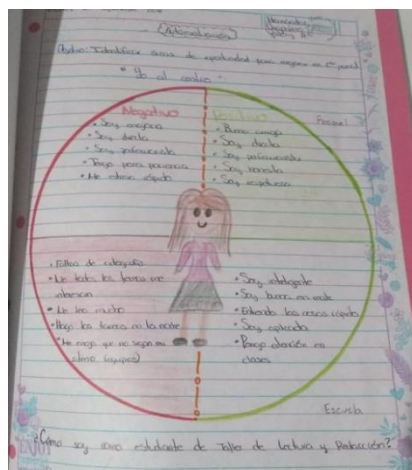 Objetivo: Identificar áreas de oportunidad para mejorar en 2º parcial
" Yo al centro "
Negativo
Positivo
Personal
• Soy enojona
• Soy directa
• Soy perfeccionista
• Tengo poca paciencia
• Me estreso rápido
• Buena amiga
• Soy directa
• Soy perfeccionista
• Soy honesta
• Soy respetuosa
• Faltas de ortografía
• No todos los temas me
interesan
• No leo mucho
• Hago las tareas en la noche
• Me enoja que no sigan mi
ritmo (equipos)
• Soy inteligente
• Soy buena en
• Entiendo las cosas rápido
• Soy aplicada
• Pongo atención en
clases
Escuela
¿Cómo soy como estudiante de Taller de Lectura y Redacción?